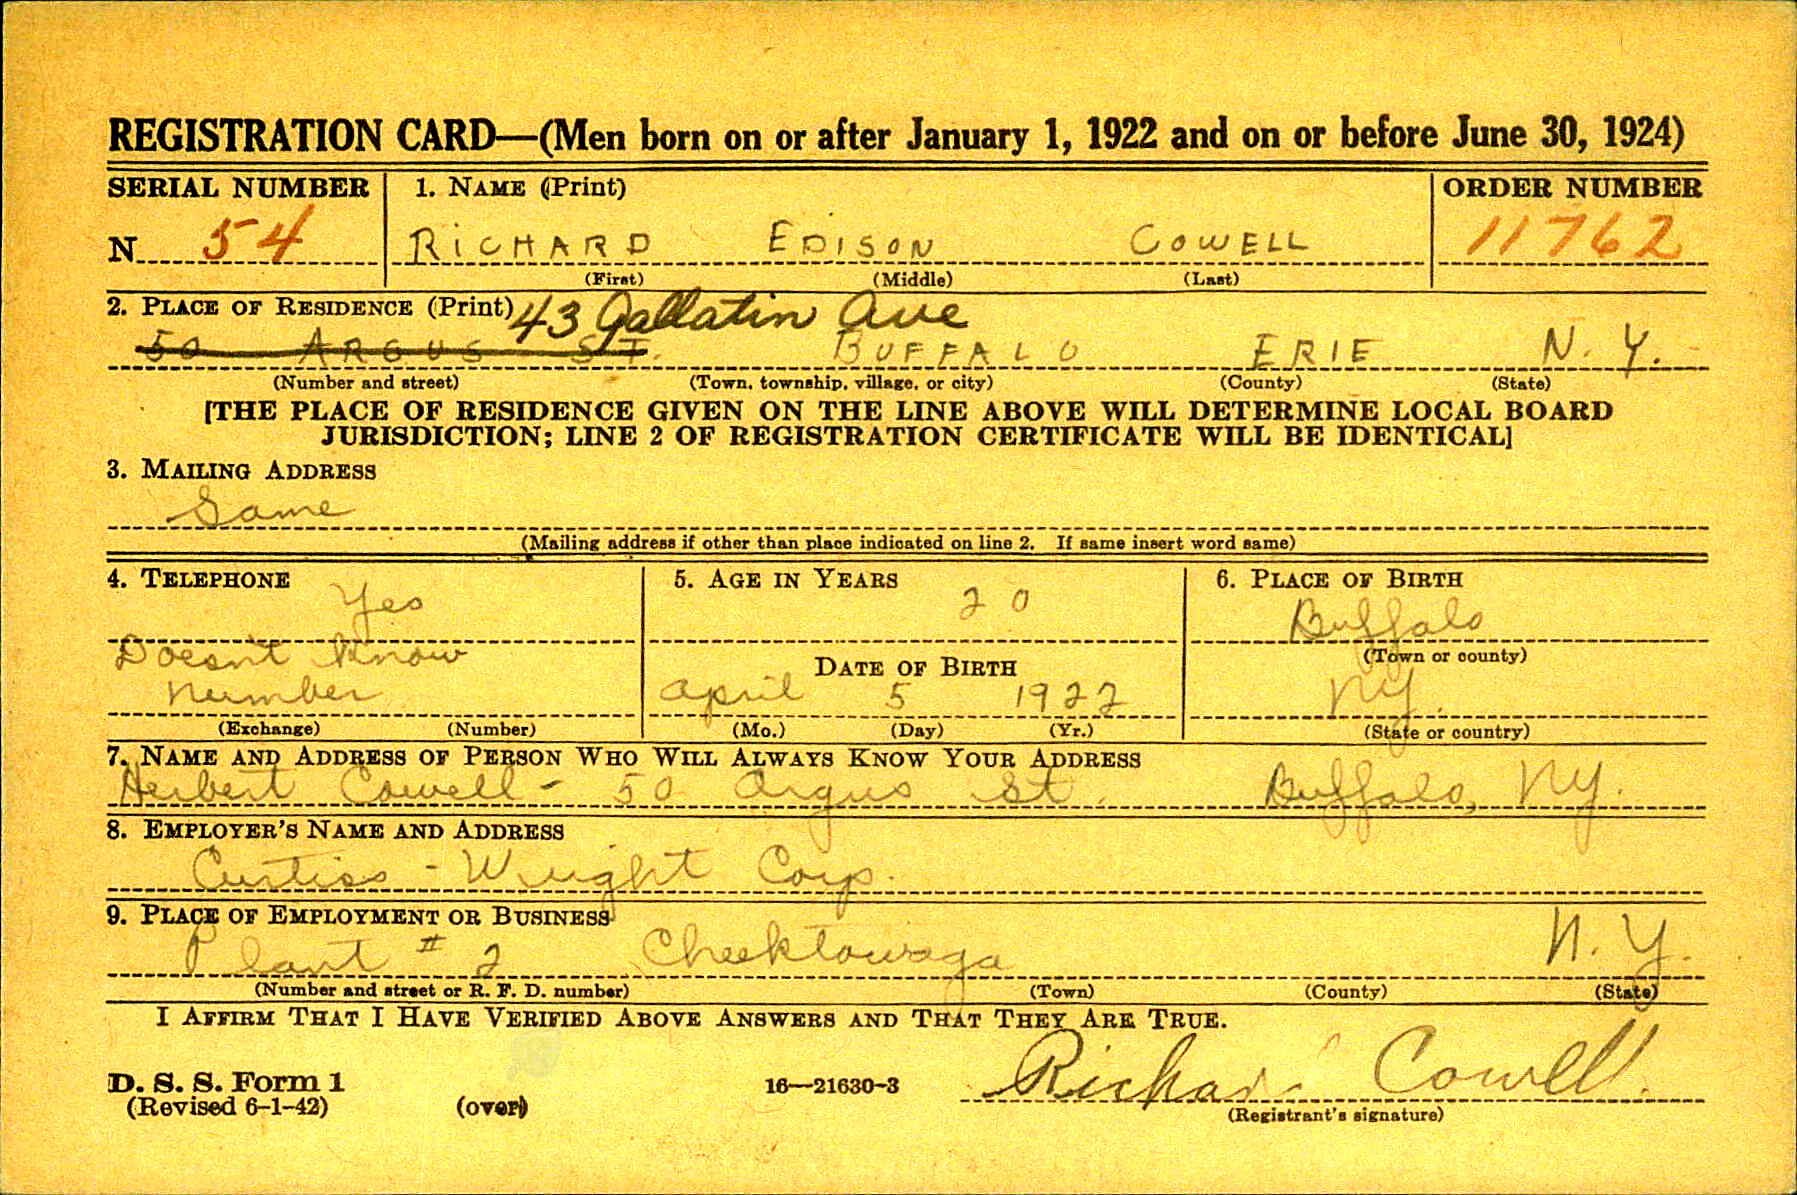 REGISTRATION CARD—(Men born on or after January 1, 1922 and on or before June 30, 1924)
SERIAL NUMBER 1. NAME (Print) ORDER NUMBER
N 54 RICHARD EDISON COWELL 11762
(First) (Middle) (Last)
2. PLACE OF RESIDENCE (Print) 43 Gallatin Ave
50 ARGUS ST. BUFFALO ERIE N. Y.
(Number and street) (Town, township, village, or city) (County) (State)
[THE PLACE OF RESIDENCE GIVEN ON THE LINE ABOVE WILL DETERMINE LOCAL BOARD
JURISDICTION; LINE 2 OF REGISTRATION CERTIFICATE WILL BE IDENTICAL]
3. MAILING ADDRESS
Same
(Mailing address if other than place indicated on line 2. If same insert word same)
4. TELEPHONE 5. AGE IN YEARS 6. PLACE OF BIRTH
Yes 20 Buffalo
Doesn't know (Town or county)
DATE OF BIRTH
number April 5 1922 NY.
(Exchange) (Number) (Mo.) (Day) (Yr.) (State or country)
7. NAME AND ADDRESS OF PERSON WHO WILL ALWAYS KNOW YOUR ADDRESS
Herbert Cowell - 50 Argus St. Buffalo, NY.
8. EMPLOYER'S NAME AND ADDRESS
Curtiss - Wright Corp.
9. PLACE OF EMPLOYMENT OR BUSINESS
Plant # 2 Cheektowaga N. Y.
(Number and street or R. F. D. number) (Town) (County) (State)
I AFFIRM THAT I HAVE VERIFIED ABOVE ANSWERS AND THAT THEY ARE TRUE.
D. S. S. Form 1 16—21630-3 Richard Cowell.
(Revised 6-1-42) (over) (Registrant's signature)